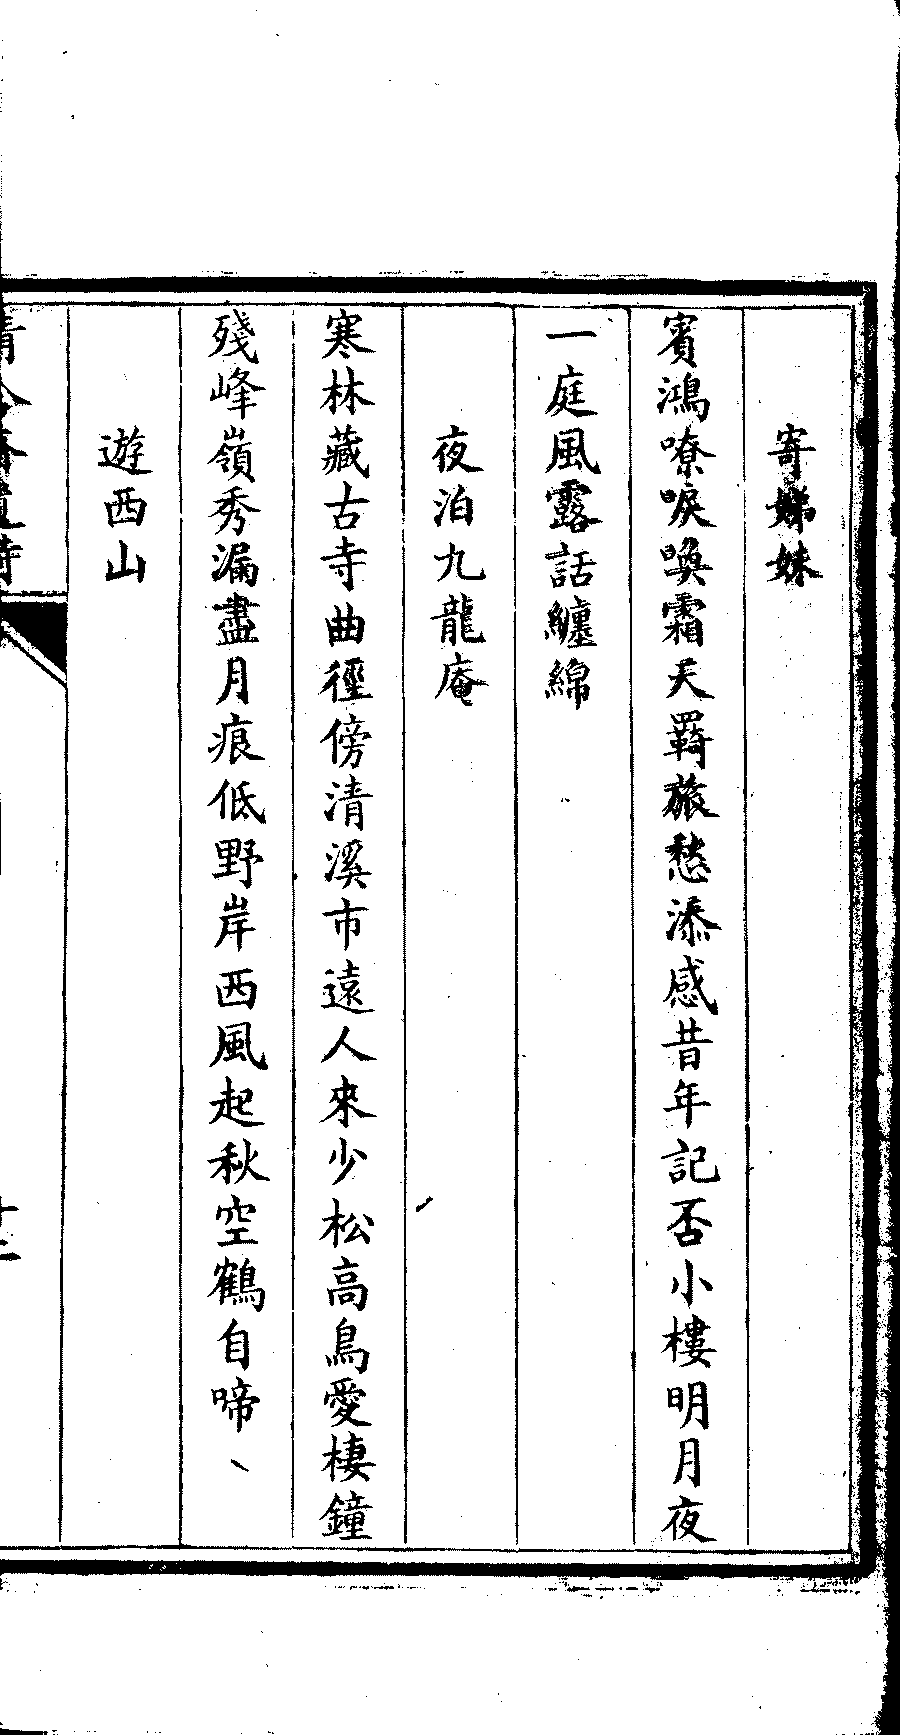 寄娣妹
賓鴻嘹唳喚霜天羇旅愁添感昔年記否小樓明月夜
一庭風露話纏綿
夜泊九龍庵
寒林藏古寺曲徑傍清溪市遠人來少松高鳥愛棲鐘
殘峰嶺秀漏盡月痕低野岸西風起秋空鶴自啼
遊西山
十二